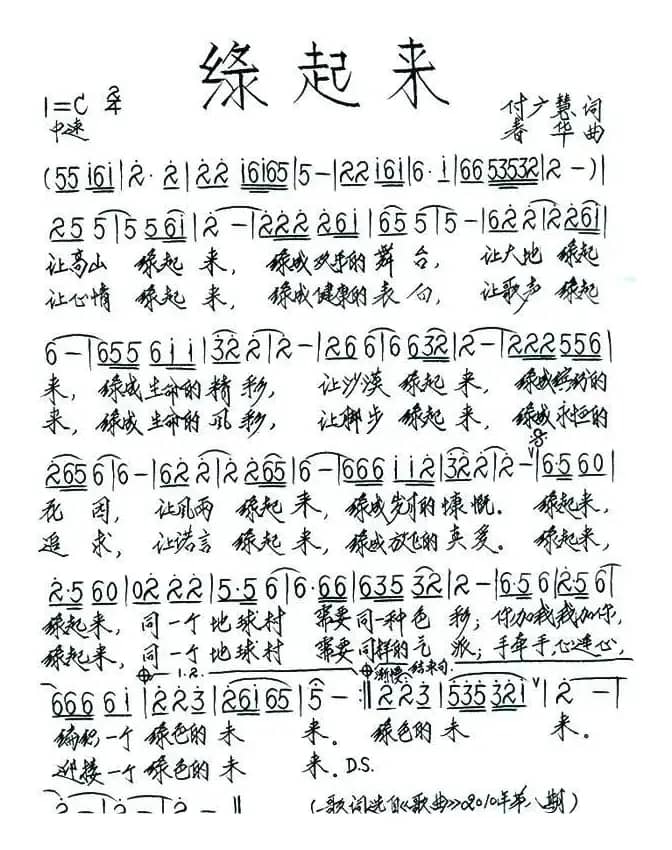 绿起来
1=C 2/4
付广慧 词
中速
春华 曲
(55 161|2·2|22 16165|5-|22 161|6·1|66 53532|2-)|
25 5|5 561|2-|222 261|65 5|5-|62 2|2261|
让高山 绿起 来, 绿成欢乐的 舞 台, 让大地 绿起
让心情 绿起 来, 绿成健康的 表 向, 让歌声 绿起
6-|655 611|32 2|2-|26 6|6 632|2-|222 556|
来, 绿成生命的精 彩, 让沙漠 绿起 来, 绿成缤纷的
来, 绿成生命的风 彩, 让脚步 绿起 来, 绿成永恒的
265 6|6-|62 2|2 265|6-|666 112|322 2|2-|6·5 60|
花 园, 让风雨 绿起 来, 绿成岁月的慷 慨。 绿起来,
追 求, 让诺言 绿起 来, 绿成放飞的真 爱。 绿起来,
2·5 60|02 22|5·5 6|6·66|635 32|2-|6·5 6|2·5 6|
绿起来, 同一个 地球村 需要同一种色 彩; 你加我我加你,
绿起来, 同一个 地球村 需要同样的气 派; 手牵手,心连心,
1.2. 渐慢 结束句
666 61|22 3|2616 5|5-:|22 3|535 321|2-|
编织一个 绿色的 未 来。 绿色的 未 来。
迎接一个 绿色的 未 来。D.S.
2-|2-|2-‖ (歌词选自《歌曲》2010年第八期)